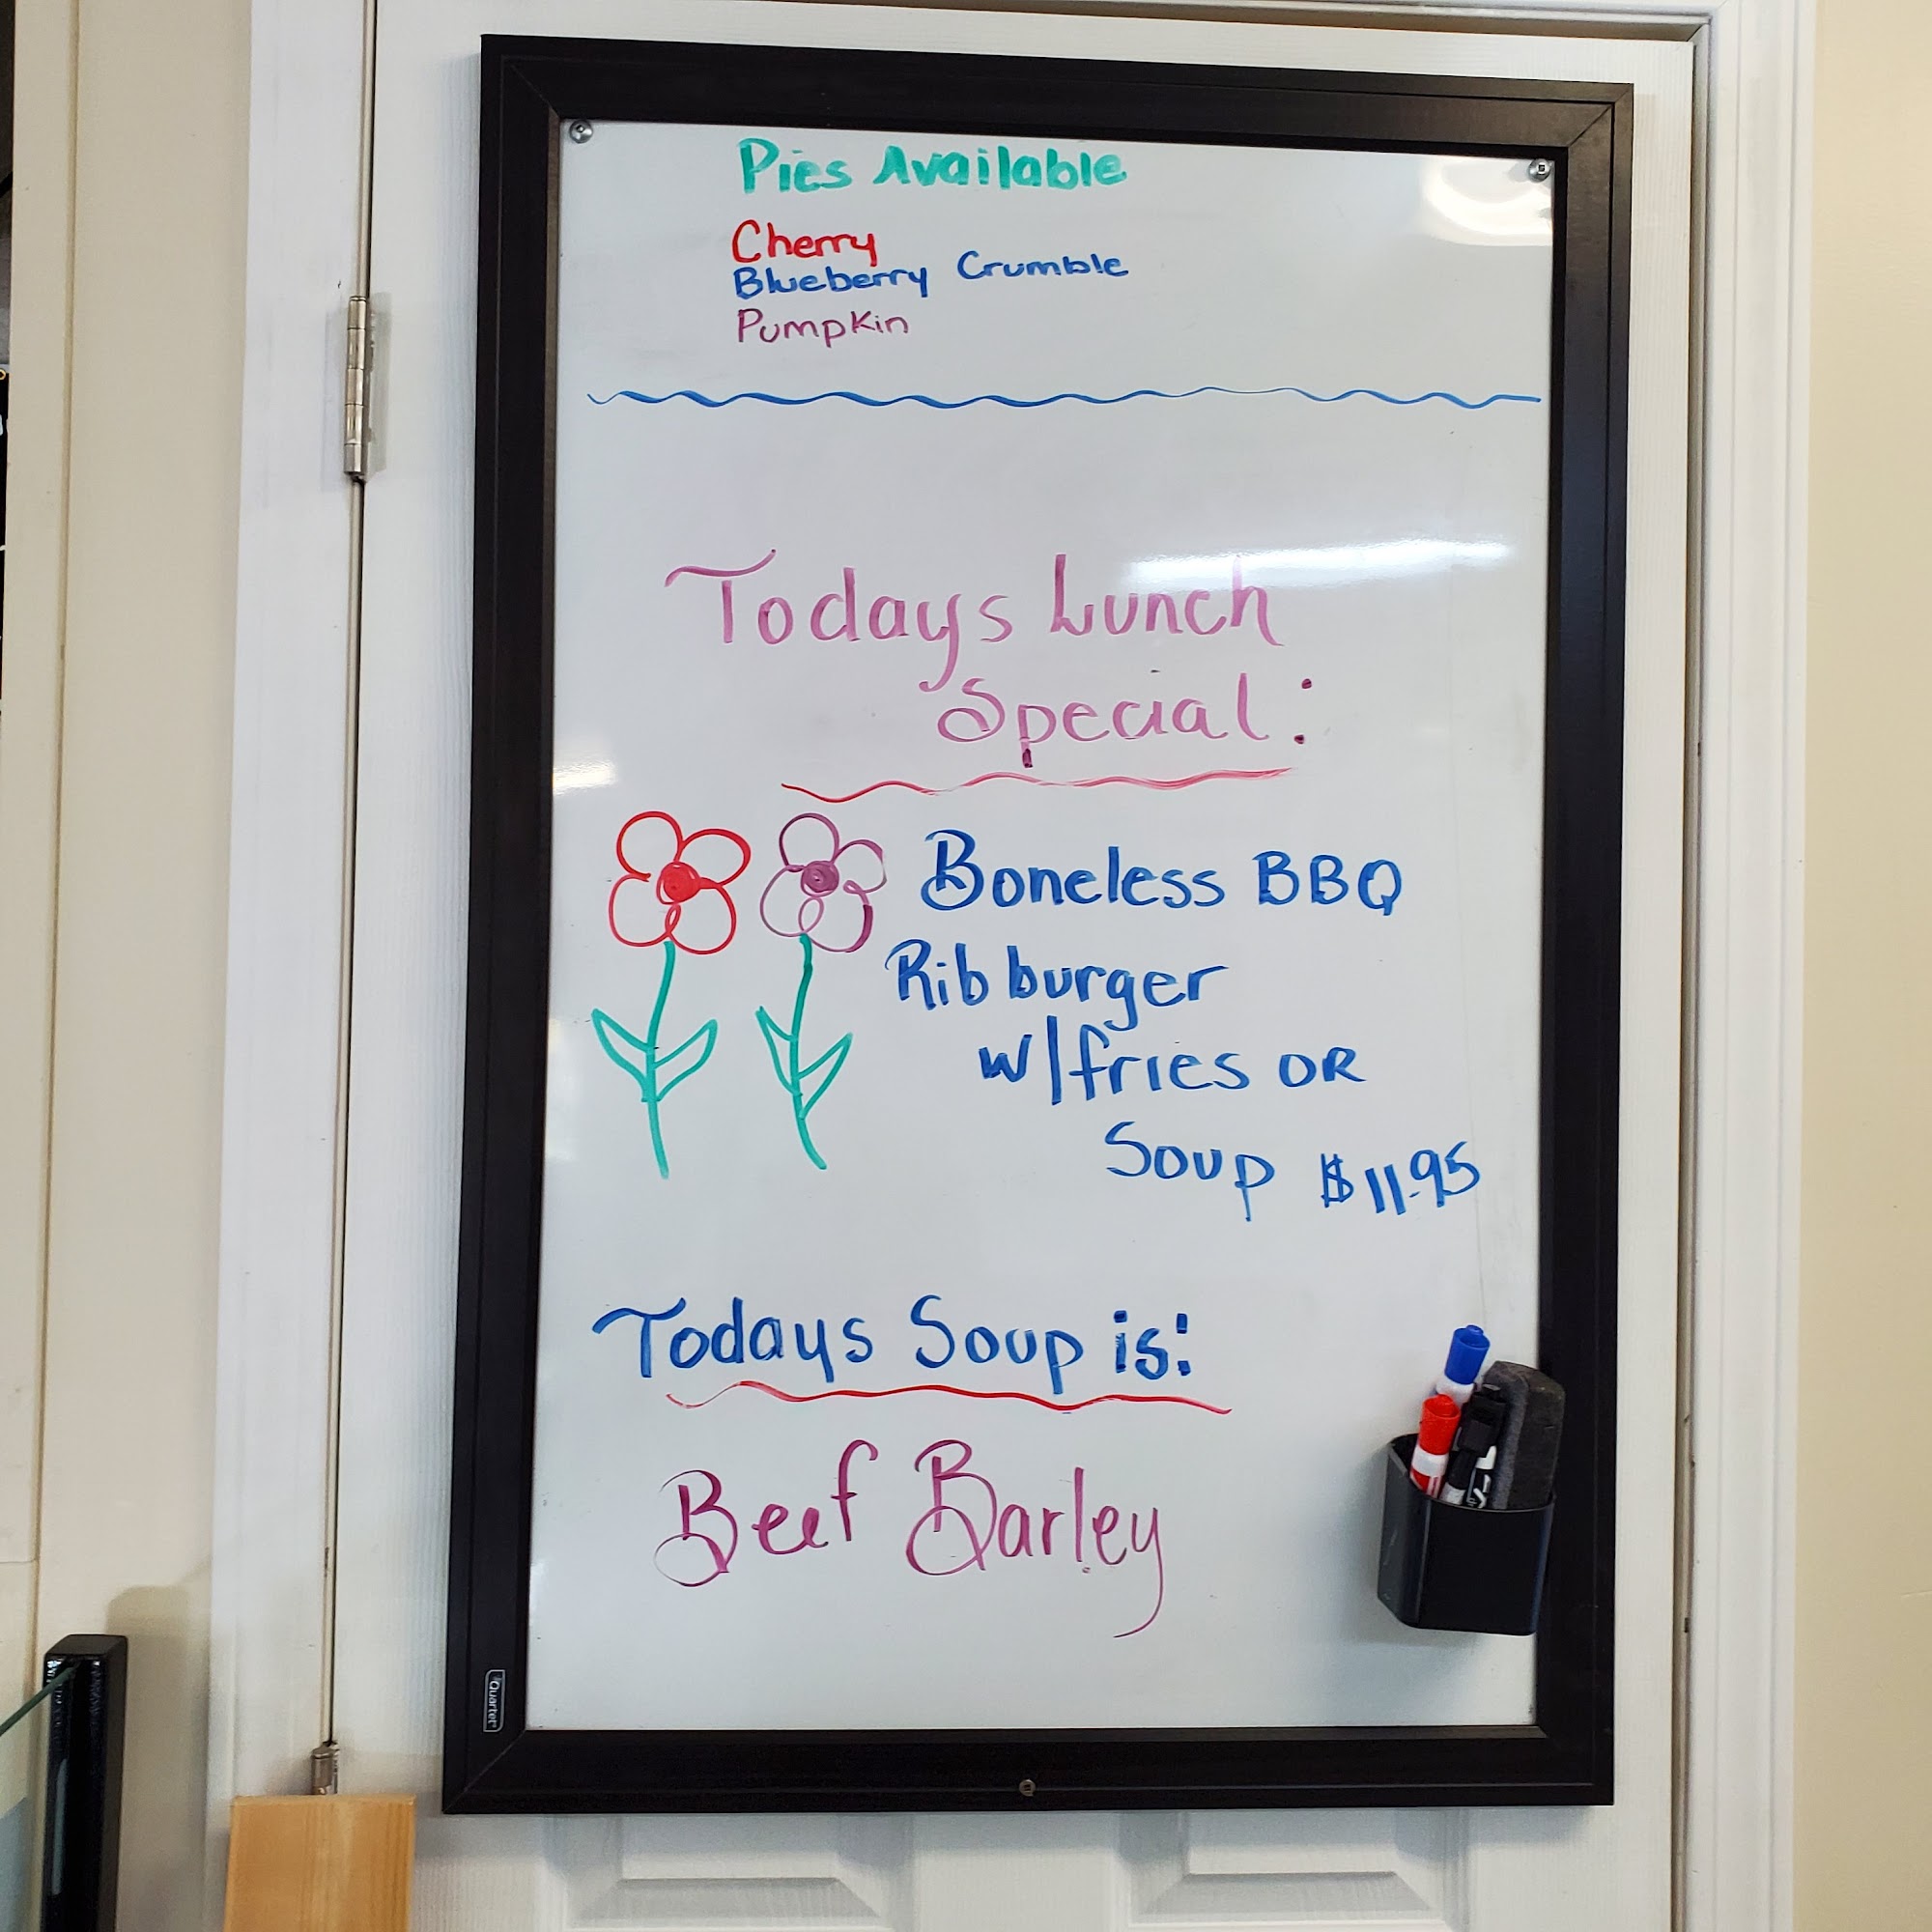 Pies Available
Cherry
Blueberry Crumble
Pumpkin
Todays Lunch
Special:
Boneless BBQ
Rib burger
w/fries OR
Soup $11.95
Todays Soup is:
Beef Barley
Quartet